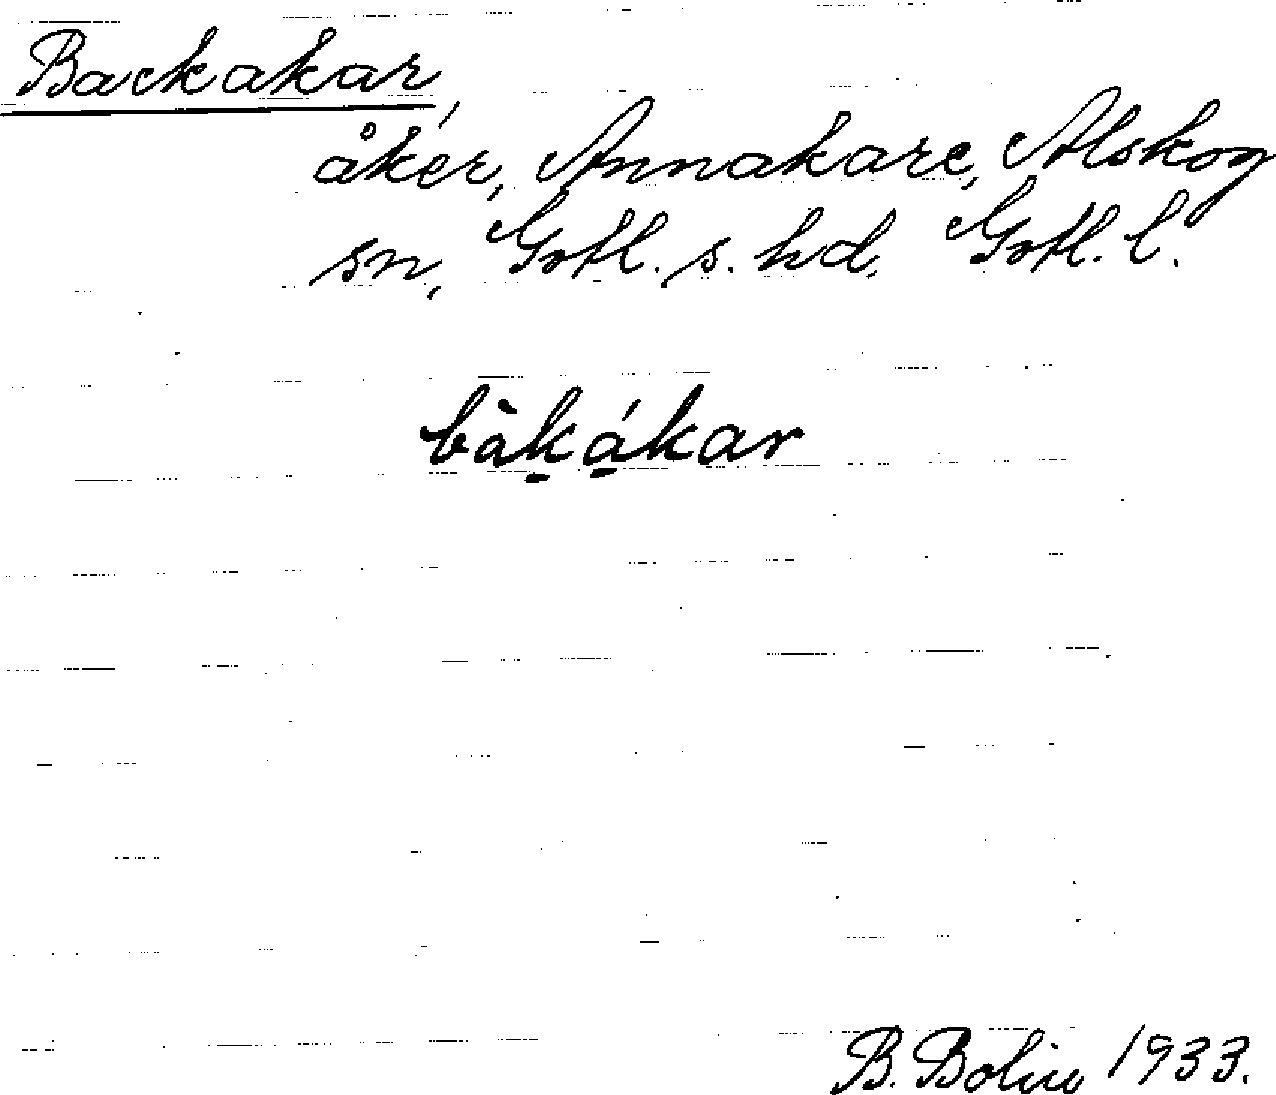 Backakar,
åker, Annakare, Alskog
sn, Gotl. s. hd, Gotl. l.
bàk̠á̠kar
B. Bolin 1933.